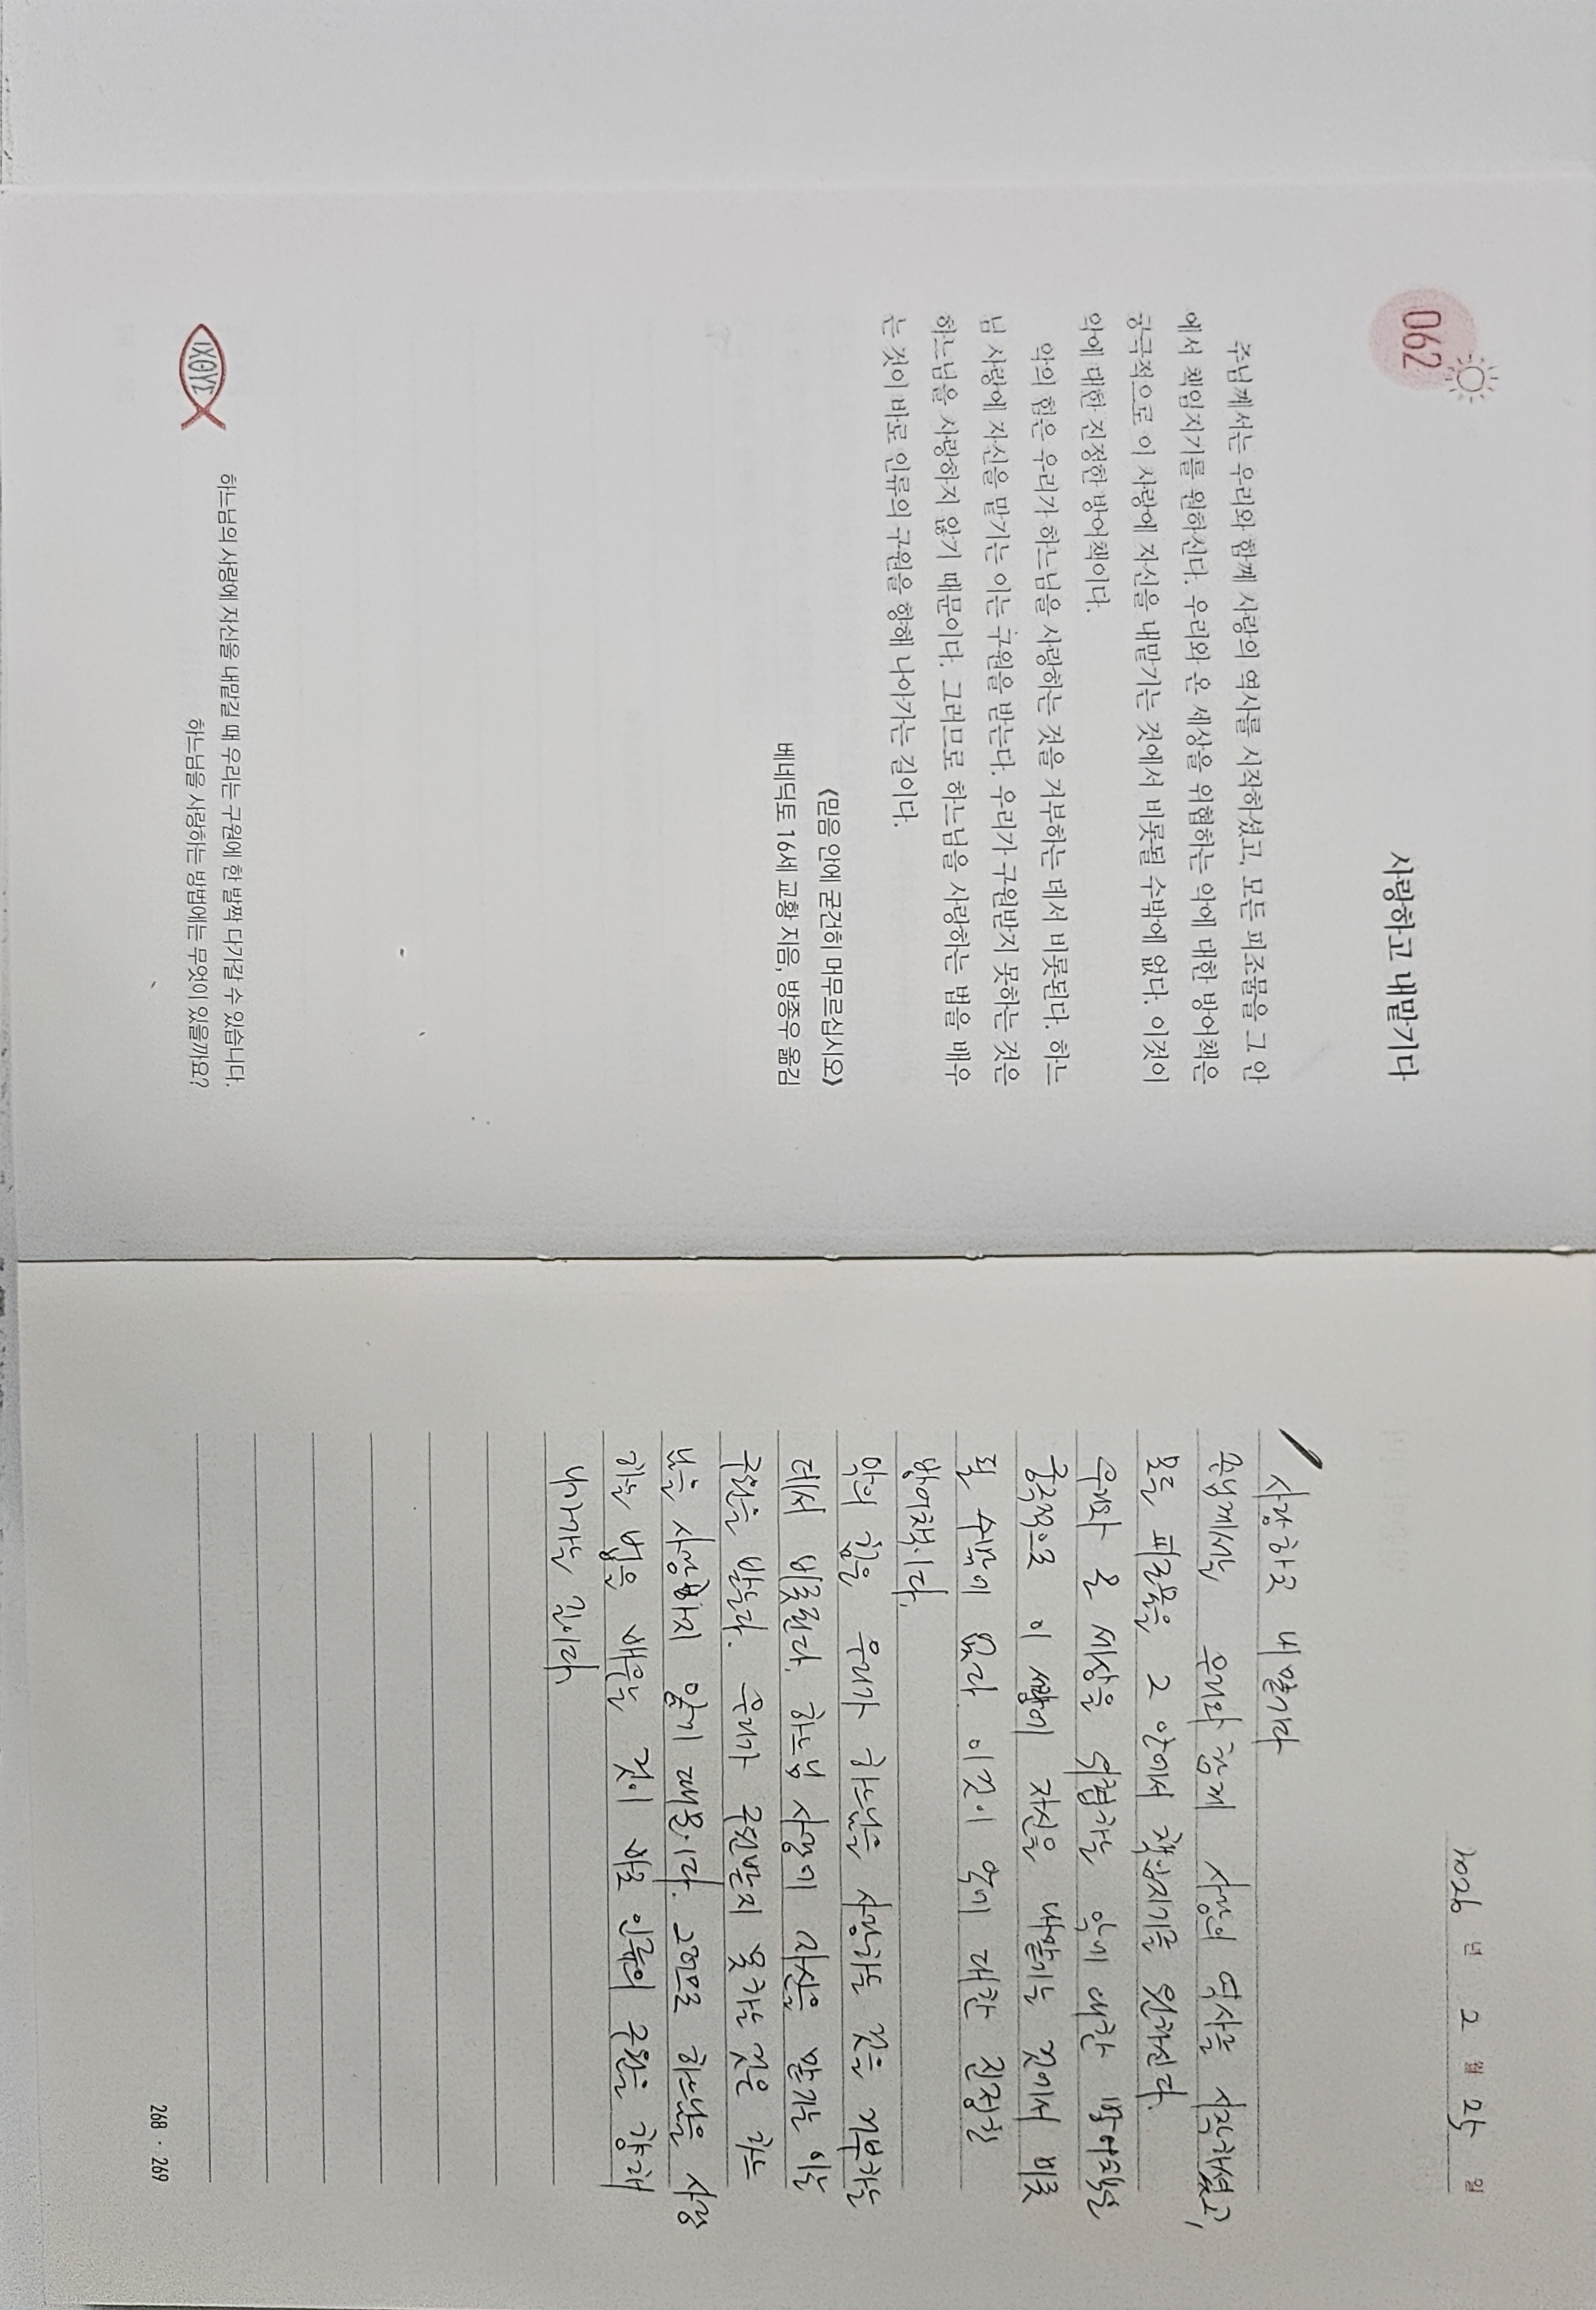 062
사랑하고 내맡기다
주님께서는 우리와 함께 사랑의 역사를 시작하셨고, 모든 피조물을 그 안
에서 책임지기를 원하신다. 우리와 온 세상을 위협하는 악에 대한 방어책은
궁극적으로 이 사랑에 자신을 내맡기는 것에서 비롯될 수밖에 없다. 이것이
악에 대한 진정한 방어책이다.
악의 힘은 우리가 하느님을 사랑하는 것을 거부하는 데서 비롯된다. 하느
님 사랑에 자신을 맡기는 이는 구원을 받는다. 우리가 구원받지 못하는 것은
하느님을 사랑하지 않기 때문이다. 그러므로 하느님을 사랑하는 법을 배우
는 것이 바로 인류의 구원을 향해 나아가는 길이다.
《믿음 안에 굳건히 머무르십시오》
베네딕토 16세 교황 지음, 방종우 옮김
ΙΧΘΥΣ
하느님의 사랑에 자신을 내맡길 때 우리는 구원에 한 발짝 다가갈 수 있습니다.
하느님을 사랑하는 방법에는 무엇이 있을까요?
2026 년 2 월 25 일
사랑하고 내맡기다
주님께서는 우리와 함께 사랑의 역사를 시작하셨고,
모든 피조물을 그 안에서 책임지기를 원하신다.
우리와 온 세상을 위협하는 악에 대한 방어책은
궁극적으로 이 사랑에 자신을 내맡기는 것에서 비롯
될 수밖에 없다. 이것이 악에 대한 진정한
방어책이다.
악의 힘은 우리가 하느님을 사랑하는 것을 거부하는
데서 비롯된다. 하느님 사랑에 자신을 맡기는 이는
구원을 받는다. 우리가 구원받지 못하는 것은 하느
님을 사랑하지 않기 때문이다. 그러므로 하느님을 사랑
하는 법을 배우는 것이 바로 인류의 구원을 향해
나아가는 길이다.
268 · 269